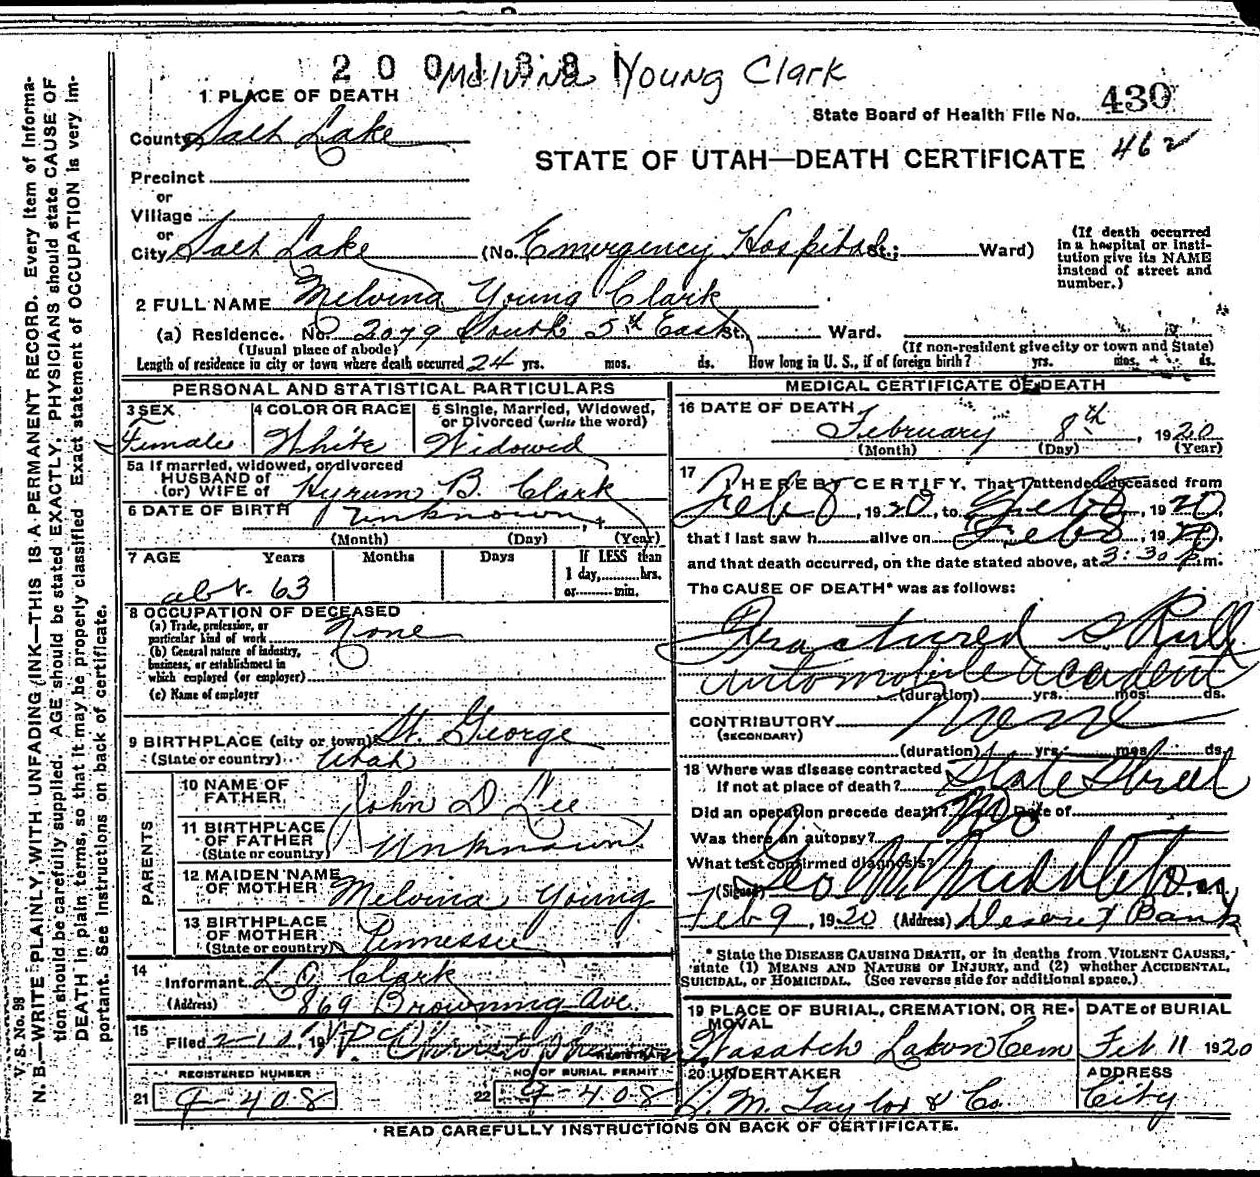 200138
Melvina Young Clark
1 PLACE OF DEATH
State Board of Health File No. 430
County Salt Lake
STATE OF UTAH—DEATH CERTIFICATE 462
Precinct
or
Village
or
City Salt Lake (No. Emergency Hospital St.; Ward)
(If death occurred in a hospital or institution give its NAME instead of street and number.)
2 FULL NAME Melvina Young Clark
(a) Residence. No. 2079 South 5th East St. Ward.
(Usual place of abode) (If non-resident give city or town and State)
Length of residence in city or town where death occurred 24 yrs. mos. ds. How long in U. S., if of foreign birth? yrs. mos. ds.
PERSONAL AND STATISTICAL PARTICULARS
3 SEX Female
4 COLOR OR RACE White
5 Single, Married, Widowed, or Divorced (write the word) Widowed
5a If married, widowed, or divorced
HUSBAND of
(or) WIFE of Hyrum B. Clark
6 DATE OF BIRTH Unknown
(Month) (Day) (Year)
7 AGE Years Months Days If LESS than 1 day, hrs. or min.
abt. 63
8 OCCUPATION OF DECEASED
(a) Trade, profession, or particular kind of work None
(b) General nature of industry, business, or establishment in which employed (or employer)
(c) Name of employer
9 BIRTHPLACE (city or town) St. George
(State or country) Utah
PARENTS
10 NAME OF FATHER John D Lee
11 BIRTHPLACE OF FATHER (State or country) Unknown
12 MAIDEN NAME OF MOTHER Melvina Young
13 BIRTHPLACE OF MOTHER (State or country) Tennessee
14
Informant L O Clark
(Address) 869 Browning Ave.
15
Filed 19 REGISTRAR
REGISTERED NUMBER
21 9-408
NO. OF BURIAL PERMIT
22 9-408
MEDICAL CERTIFICATE OF DEATH
16 DATE OF DEATH
February 8th, 1920
(Month) (Day) (Year)
17 I HEREBY CERTIFY, That I attended deceased from
Feb 8, 1920, to Feb 8, 1920,
that I last saw h alive on Feb 8, 1920,
and that death occurred, on the date stated above, at 3:30 p.m.
The CAUSE OF DEATH* was as follows:
Fractured Skull
Automobile Accident
(duration) yrs. mos. ds.
CONTRIBUTORY None
(SECONDARY)
(duration) yrs. mos. ds.
18 Where was disease contracted
If not at place of death? State Street
Did an operation precede death? No Date of
Was there an autopsy?
What test confirmed diagnosis?
(Signed) Geo W. Middleton, M.D.
Feb 9, 1920 (Address) Deseret Bank
* State the DISEASE CAUSING DEATH, or in deaths from VIOLENT CAUSES, state (1) MEANS AND NATURE OF INJURY, and (2) whether ACCIDENTAL, SUICIDAL, or HOMICIDAL. (See reverse side for additional space.)
19 PLACE OF BURIAL, CREMATION, OR REMOVAL
Wasatch Lawn Cem
DATE of BURIAL
Feb 11 1920
20 UNDERTAKER
S. M. Taylor & Co.
ADDRESS
City
READ CAREFULLY INSTRUCTIONS ON BACK OF CERTIFICATE.
V. S. No. 98
N. B.—WRITE PLAINLY, WITH UNFADING INK—THIS IS A PERMANENT RECORD. Every item of information should be carefully supplied. AGE should be stated EXACTLY. PHYSICIANS should state CAUSE OF DEATH in plain terms, so that it may be properly classified. Exact statement of OCCUPATION is very important. See instructions on back of certificate.